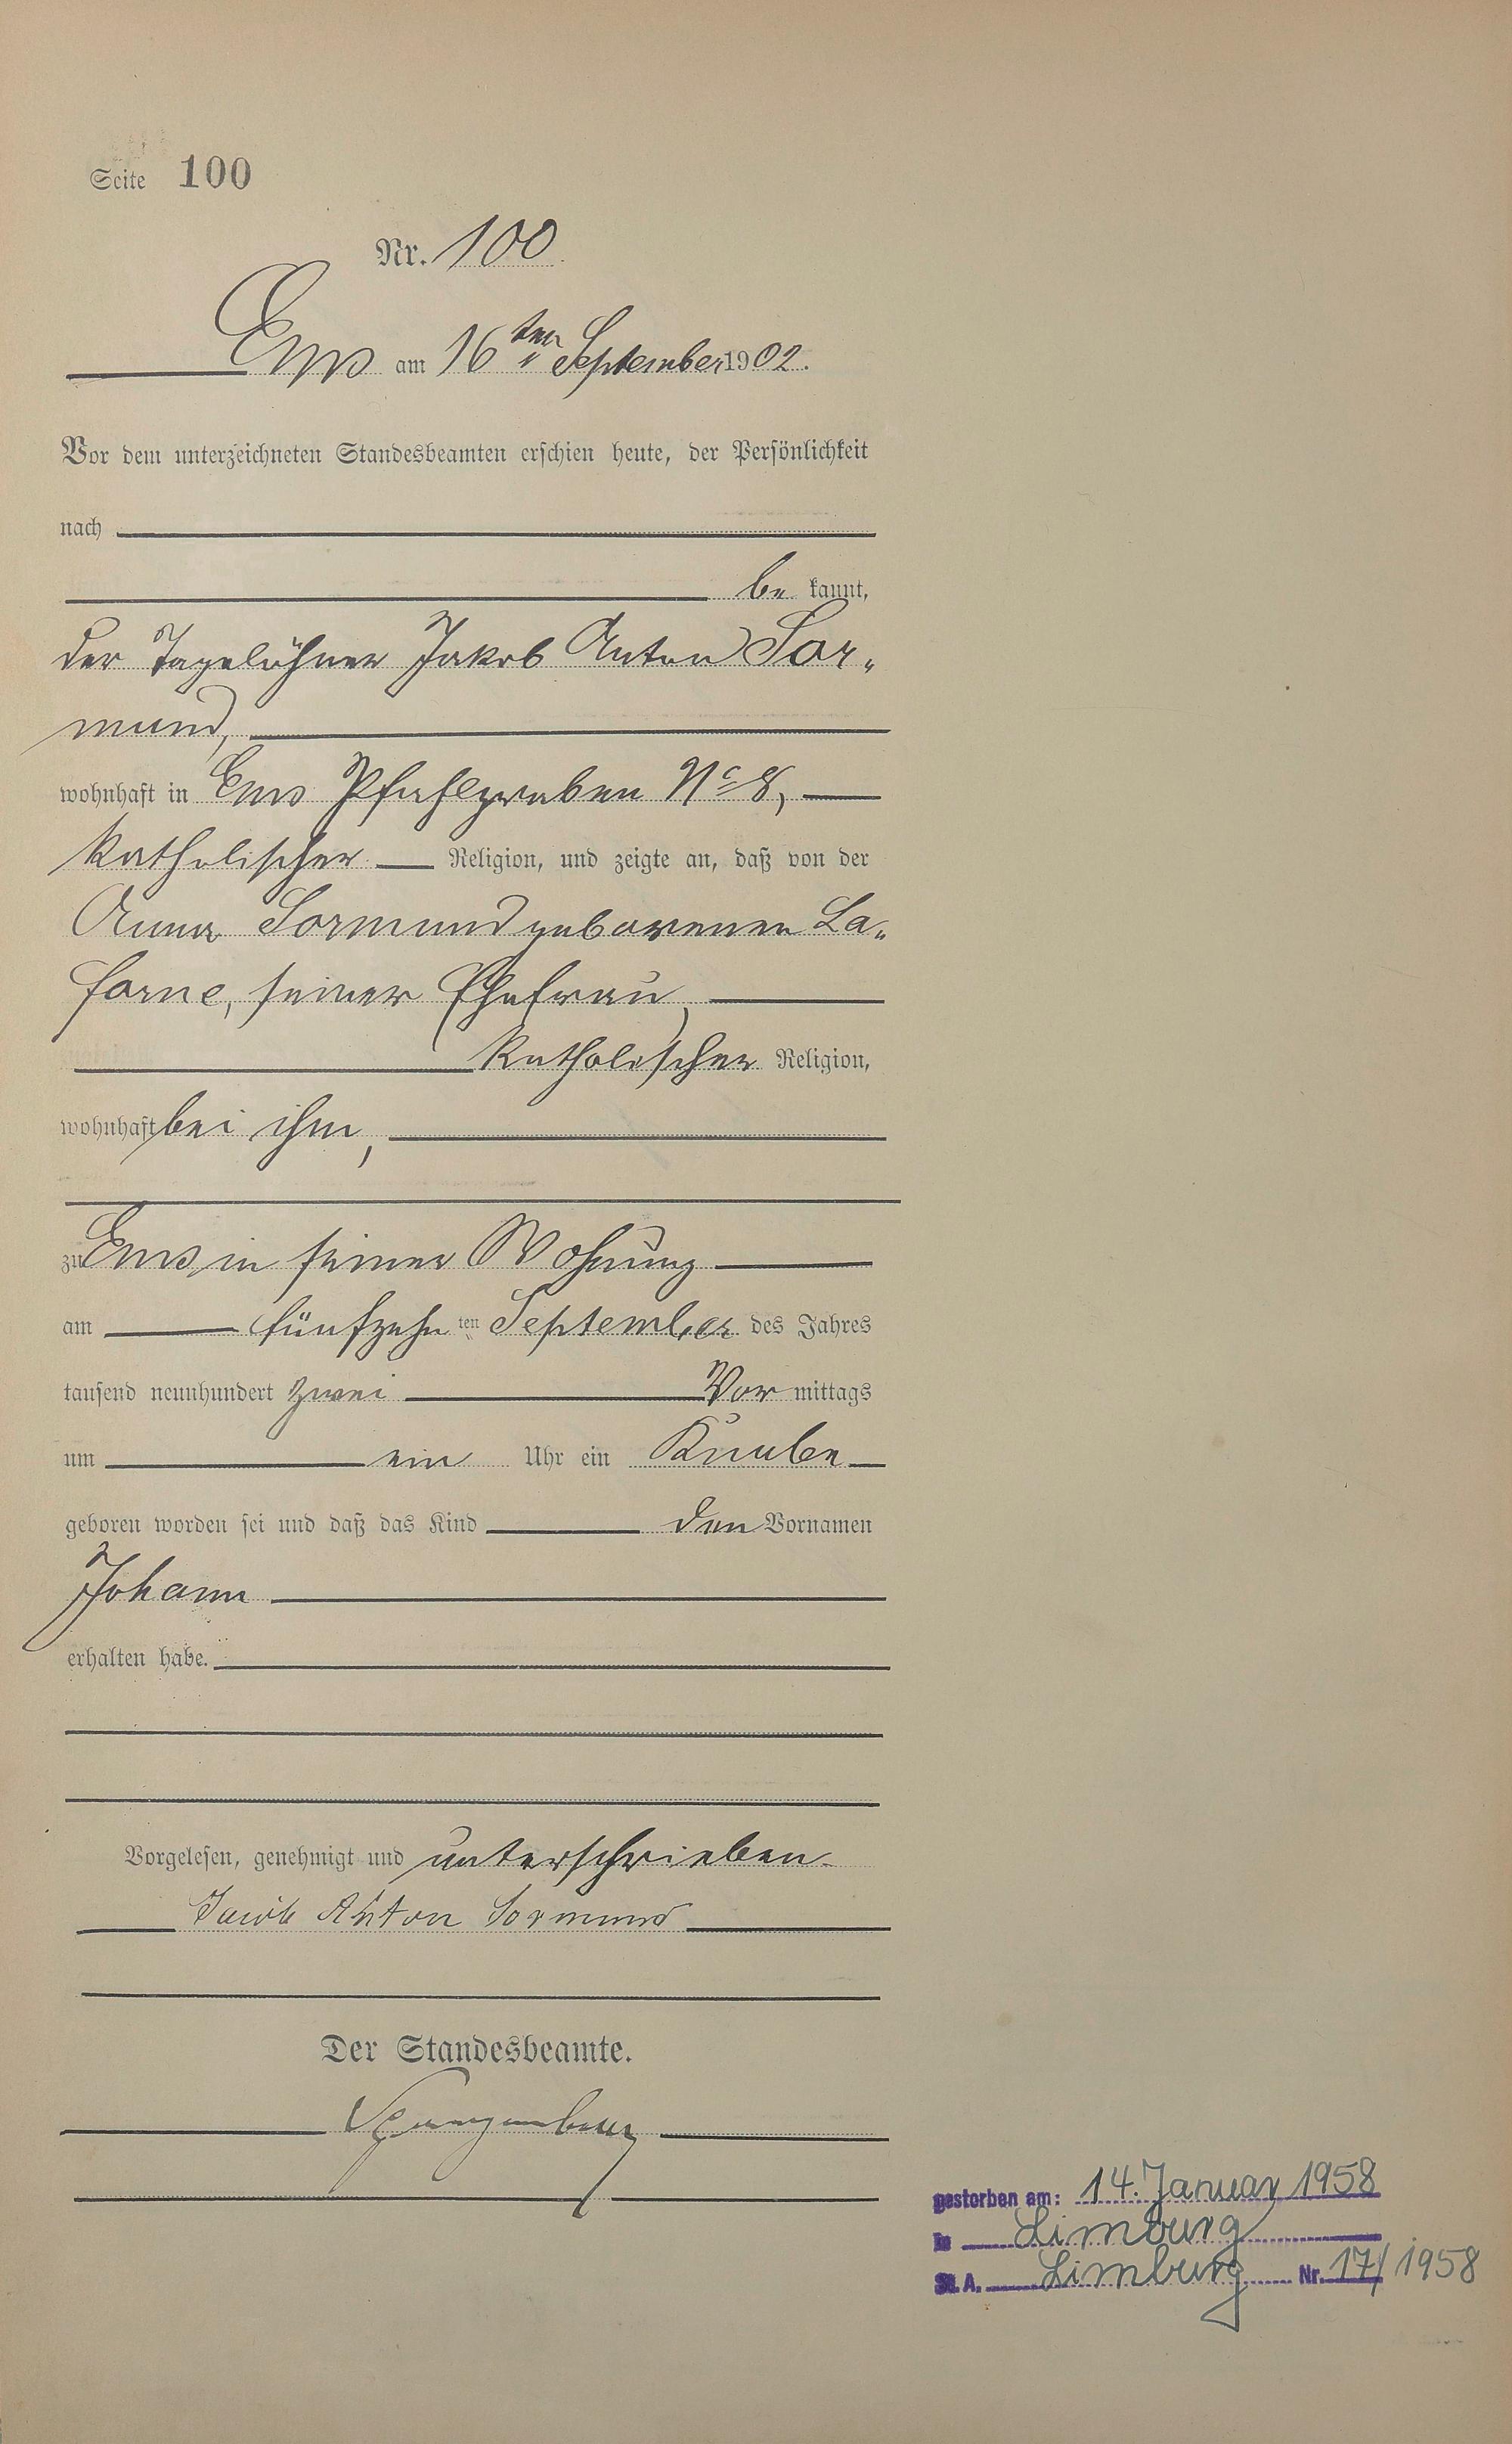 Seite 100
Nr. 100
Ems am 16ten September 1902.
Vor dem unterzeichneten Standesbeamten erschien heute, der Persönlichkeit
nach
be kannt,
der Tagelöhner Jakob Anton Sor„
mund,
wohnhaft in Ems Pfahlgraben No 8,
katholischer Religion, und zeigte an, daß von der
Anna Sormund geborenen La„
forne, seiner Ehefrau,
katholischer Religion,
wohnhaft bei ihm,
zu Ems in seiner Wohnung
am fünfzehn ten September des Jahres
tausend neunhundert zwei Vor mittags
um ein Uhr ein Knabe
geboren worden sei und daß das Kind den Vornamen
Johann
erhalten habe.
Vorgelesen, genehmigt und unterschrieben
Jacob Anton Sormund
Der Standesbeamte.
Spangenberg
gestorben am: 14. Januar 1958
in Limburg
St. A. Limburg Nr. 17/1958